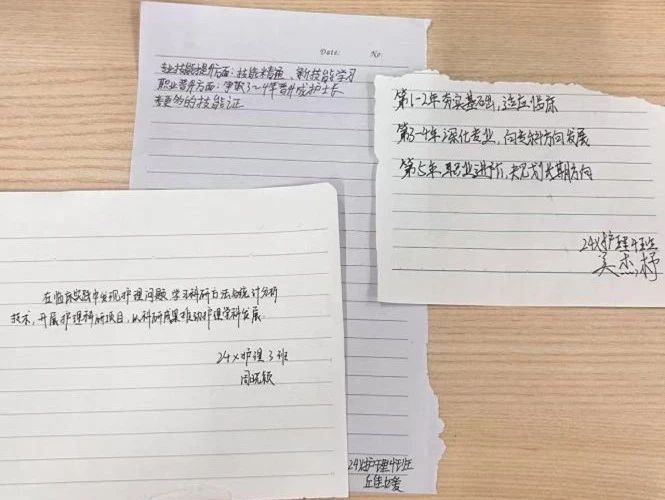 Date: No.
专业技能提升方面：技能精通、新技能学习
职业晋升方面：争取3~4年晋升成护士长
考更多的技能证
24级护理4班
第1-2年夯实基础，适应临床
第3-4年深化专业，向专科方向发展
第5年，职业进阶，规划长期方向
24级护理4班
在临床实践中发现护理问题，学习科研方法与统计分析
技术，开展护理科研项目，以科研成果推动护理学科发展
24级护理3班
周晓颖